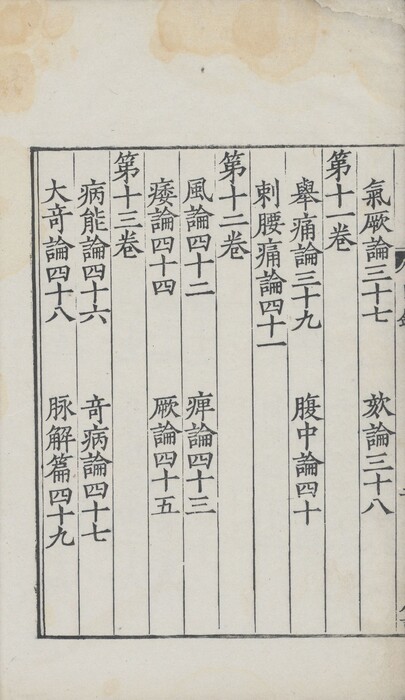 氣厥論三十七　欬論三十八
第十一卷
舉痛論三十九　腹中論四十
刺腰痛論四十一
第十二卷
風論四十二　痺論四十三
痿論四十四　厥論四十五
第十三卷
病能論四十六　竒病論四十七
大竒論四十八　脉解篇四十九